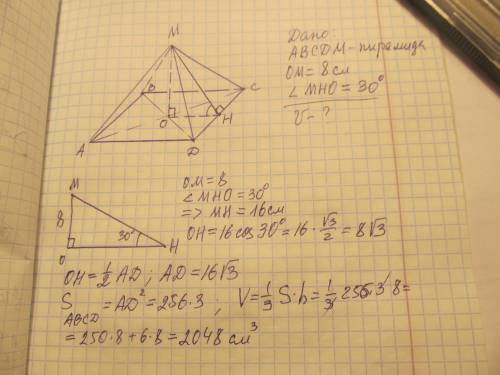 Дано
ABCDM - пирамида
OM = 8 см
∠MHO = 30°
V - ?
M
B
C
O
H
A
D
M
8
30°
O
H
OM = 8
∠MHO = 30°
=> MH = 16 см
OH = 16 cos 30° = 16 · √3/2 = 8√3
OH = 1/2 AD; AD = 16√3
S ABCD = AD² = 256·3 ; V = 1/3 S·h = 1/3 256·3·8 =
= 250·8 + 6·8 = 2048 см³